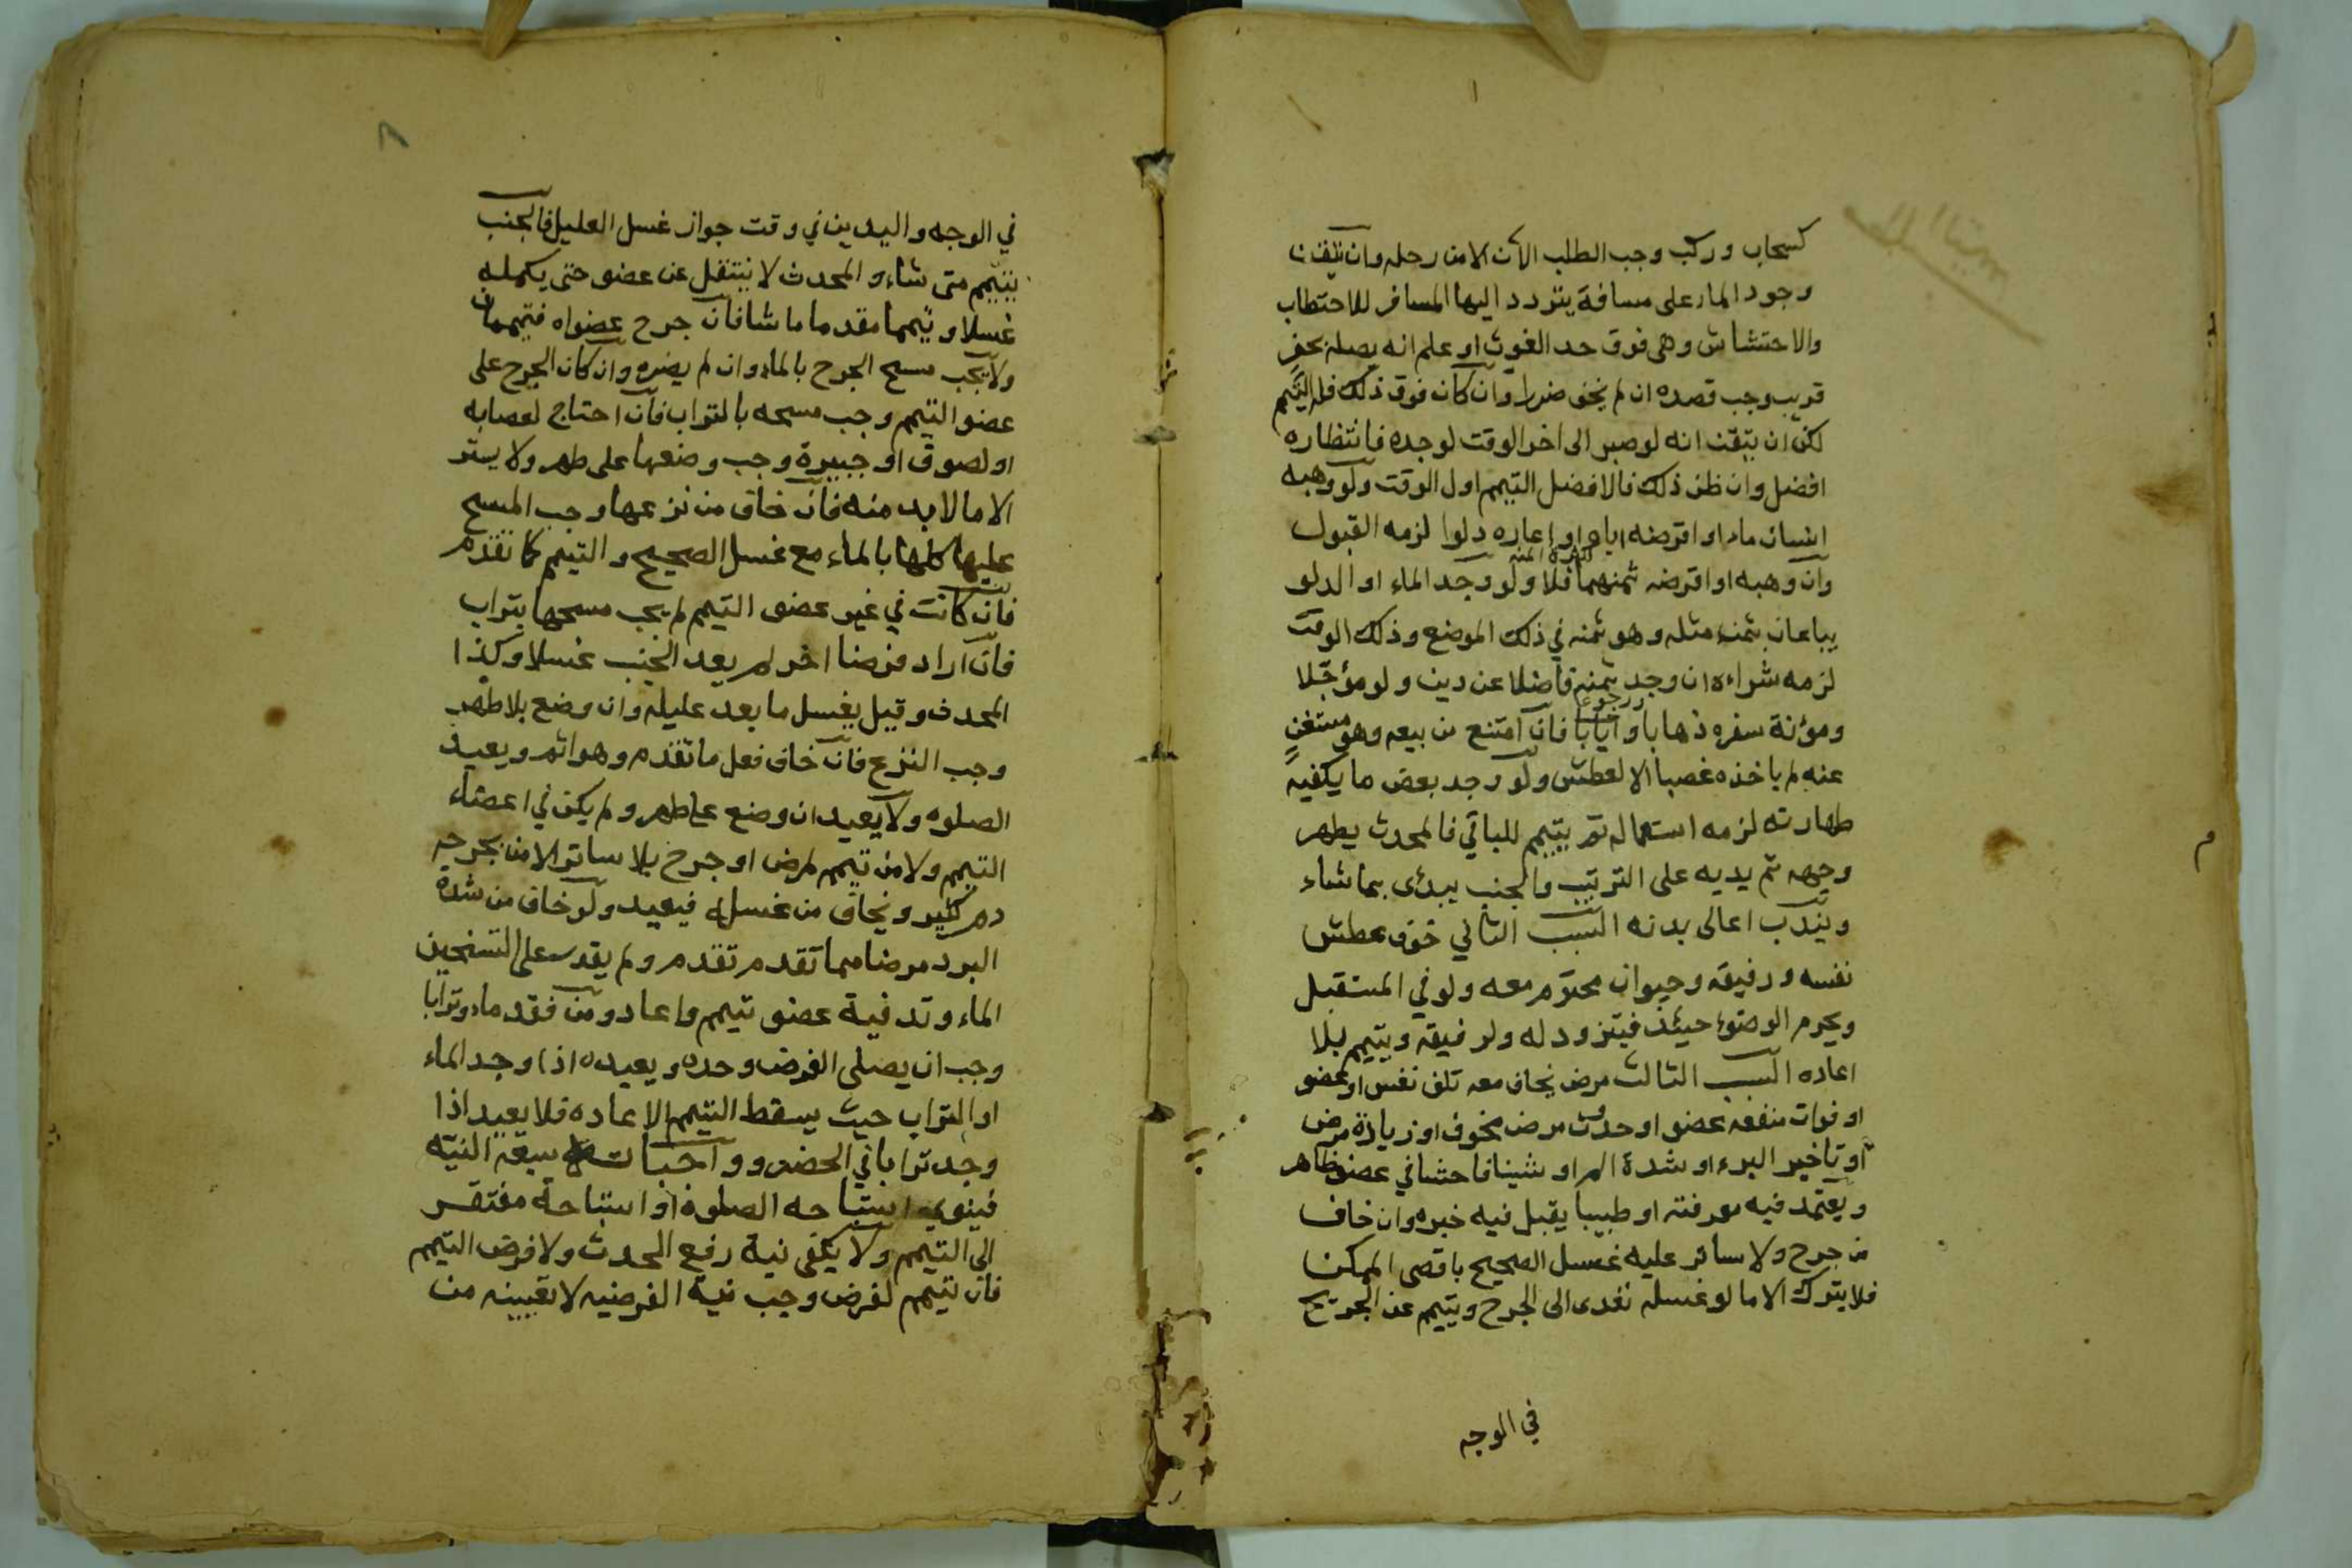 كسحاب وركب وجب الطلب الان الا من رحله وان تيقن
وجود الماء على مسافة يتردد اليها المسافر للاحتطاب
والاحتشاش وهي فوق حد الغوث او علم انه يصله بحفر
قريب وجب قصده ان لم يخف ضررا وان كان فوق ذلك فله التيمم
لكن ان تيقن انه لو صبر الى اخر الوقت لوجده فانتظاره
افضل وان ظن ذلك فالافضل التيمم اول الوقت ولو وهبه
انسان ماء او اقرضه اياه او اعاره دلوا لزمه القبول
وان وهبه او اقرضه ثمنهما فلا ولو وجد الماء او الدلو
يباعان بثمن مثله وهو ثمنه في ذلك الموضع وذلك الوقت
لزمه شراءه ان وجد ثمنه فاضلا عن دين ولو مؤجلا
ورجوعا
ومؤنة سفره ذهابا وايابا فان امتنع من بيعه وهو مستغن
عنه لم ياخذه غصبا الا لعطش ولو وجد بعض ما يكفيه
طهارته لزمه استعماله ثم يتيمم للباقي فالمحدث يطهر
وجهه ثم يديه على الترتيب والجنب يبدئ بما شاء
ويندب اعالى بدنه السبب الثاني خوف عطش
نفسه ورفيقه وحيوان محترم معه ولو في المستقبل
ويحرم الوضوء حينئذ فيتزود له ولرفيقه ويتيمم بلا
اعاده السبب الثالث مرض يخاف معه تلف نفس او عضو
او فوات منفعه عضو او حدوث مرض مخوف او زيادة مرض
او تاخير البرء او شدة الم او شينا فاحشا في عضو ظاهر
ويعتمد فيه معرفته او طبيبا يقبل فيه خبره وان خاف
من جرح ولا ساتر عليه غسل الصحيح باقصى الممكن
فلا يترك الا ما لو غسله تعدى الى الجرح ويتيمم عن الجريح
في الوجه
٨
في الوجه واليدين في وقت جواز غسل العليل فالجنب
يتيمم متى شاء والمحدث لا ينتقل عن عضو حتى يكمله
غسلا وتيمما مقدما ما شا فان جرح عضواه فتيممان
ولا يجب مسح الجرح بالماء وان لم يضره وان كان الجرح على
عضو التيمم وجب مسحه بالتراب فان احتاج لعصابه
او لصوق او جبيرة وجب وضعها على طهر ولا يستر
الا ما لا بد منه فان خاف من نزعها وجب المسح
عليها كلها بالماء مع غسل الصحيح والتيمم كما تقدم
فان كانت في غير عضو التيمم لم يجب مسحها بتراب
فان اراد فرضا اخر لم يعد الجنب غسلا وكذا
المحدث وقيل يغسل ما بعد عليله وان وضع بلا طهر
وجب النزع فان خاف فعل ما تقدم وهو اثم ويعيد
الصلوه ولا يعيد ان وضع على طهر ولم يكن في اعضاء
التيمم ولا من تيمم لمرض او جرح بلا ساتر الا من بجرحه
دم كثير ويخاف من غسله فيعيد ولو خاف من شدة
البرد مرضا مما تقدم تقدم ولم يقدر على التسخين
الماء وتدفية عضو تيمم واعاد ومن فقد ماء وترابا
وجب ان يصلي الفرض وحده ويعيده اذا وجد الماء
او التراب حيث يسقط التيمم الاعاده فلا يعيد اذا
وجد ترابا في الحضر وواجباته سبعة النيه
فينوي استباحه الصلوة او استباحة مفتقر
الى التيمم ولا يكفي نية رفع الحدث ولا فرض التيمم
فان تيمم لفرض وجب نية الفرضيه لا تعيينه من